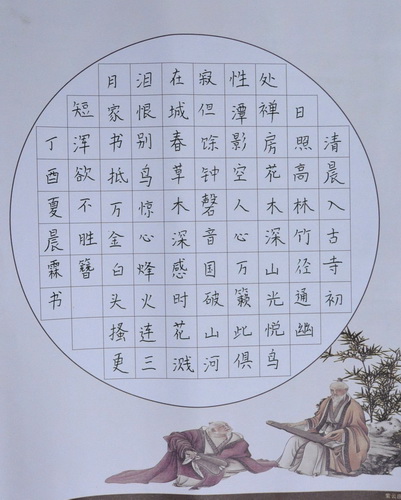 清晨入古寺初
日照高林竹径通幽
处禅房花木深山光悦鸟
性潭影空人心万籁此俱
寂但馀钟磬音国破山河
在城春草木深感时花溅
泪恨别鸟惊心烽火连三
月家书抵万金白头搔更
短浑欲不胜簪
丁酉夏晨霖书